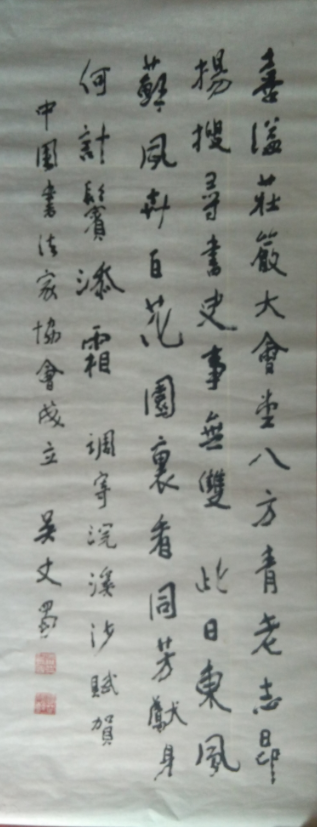 喜溢莊嚴大會堂八方青老志昂
揚搜尋書史事無雙 此日東風
蘇夙卉百花園裏看同芳獻身
何計鬢添霜 調寄浣溪沙賦賀
中國書法家協會成立 吳丈蜀